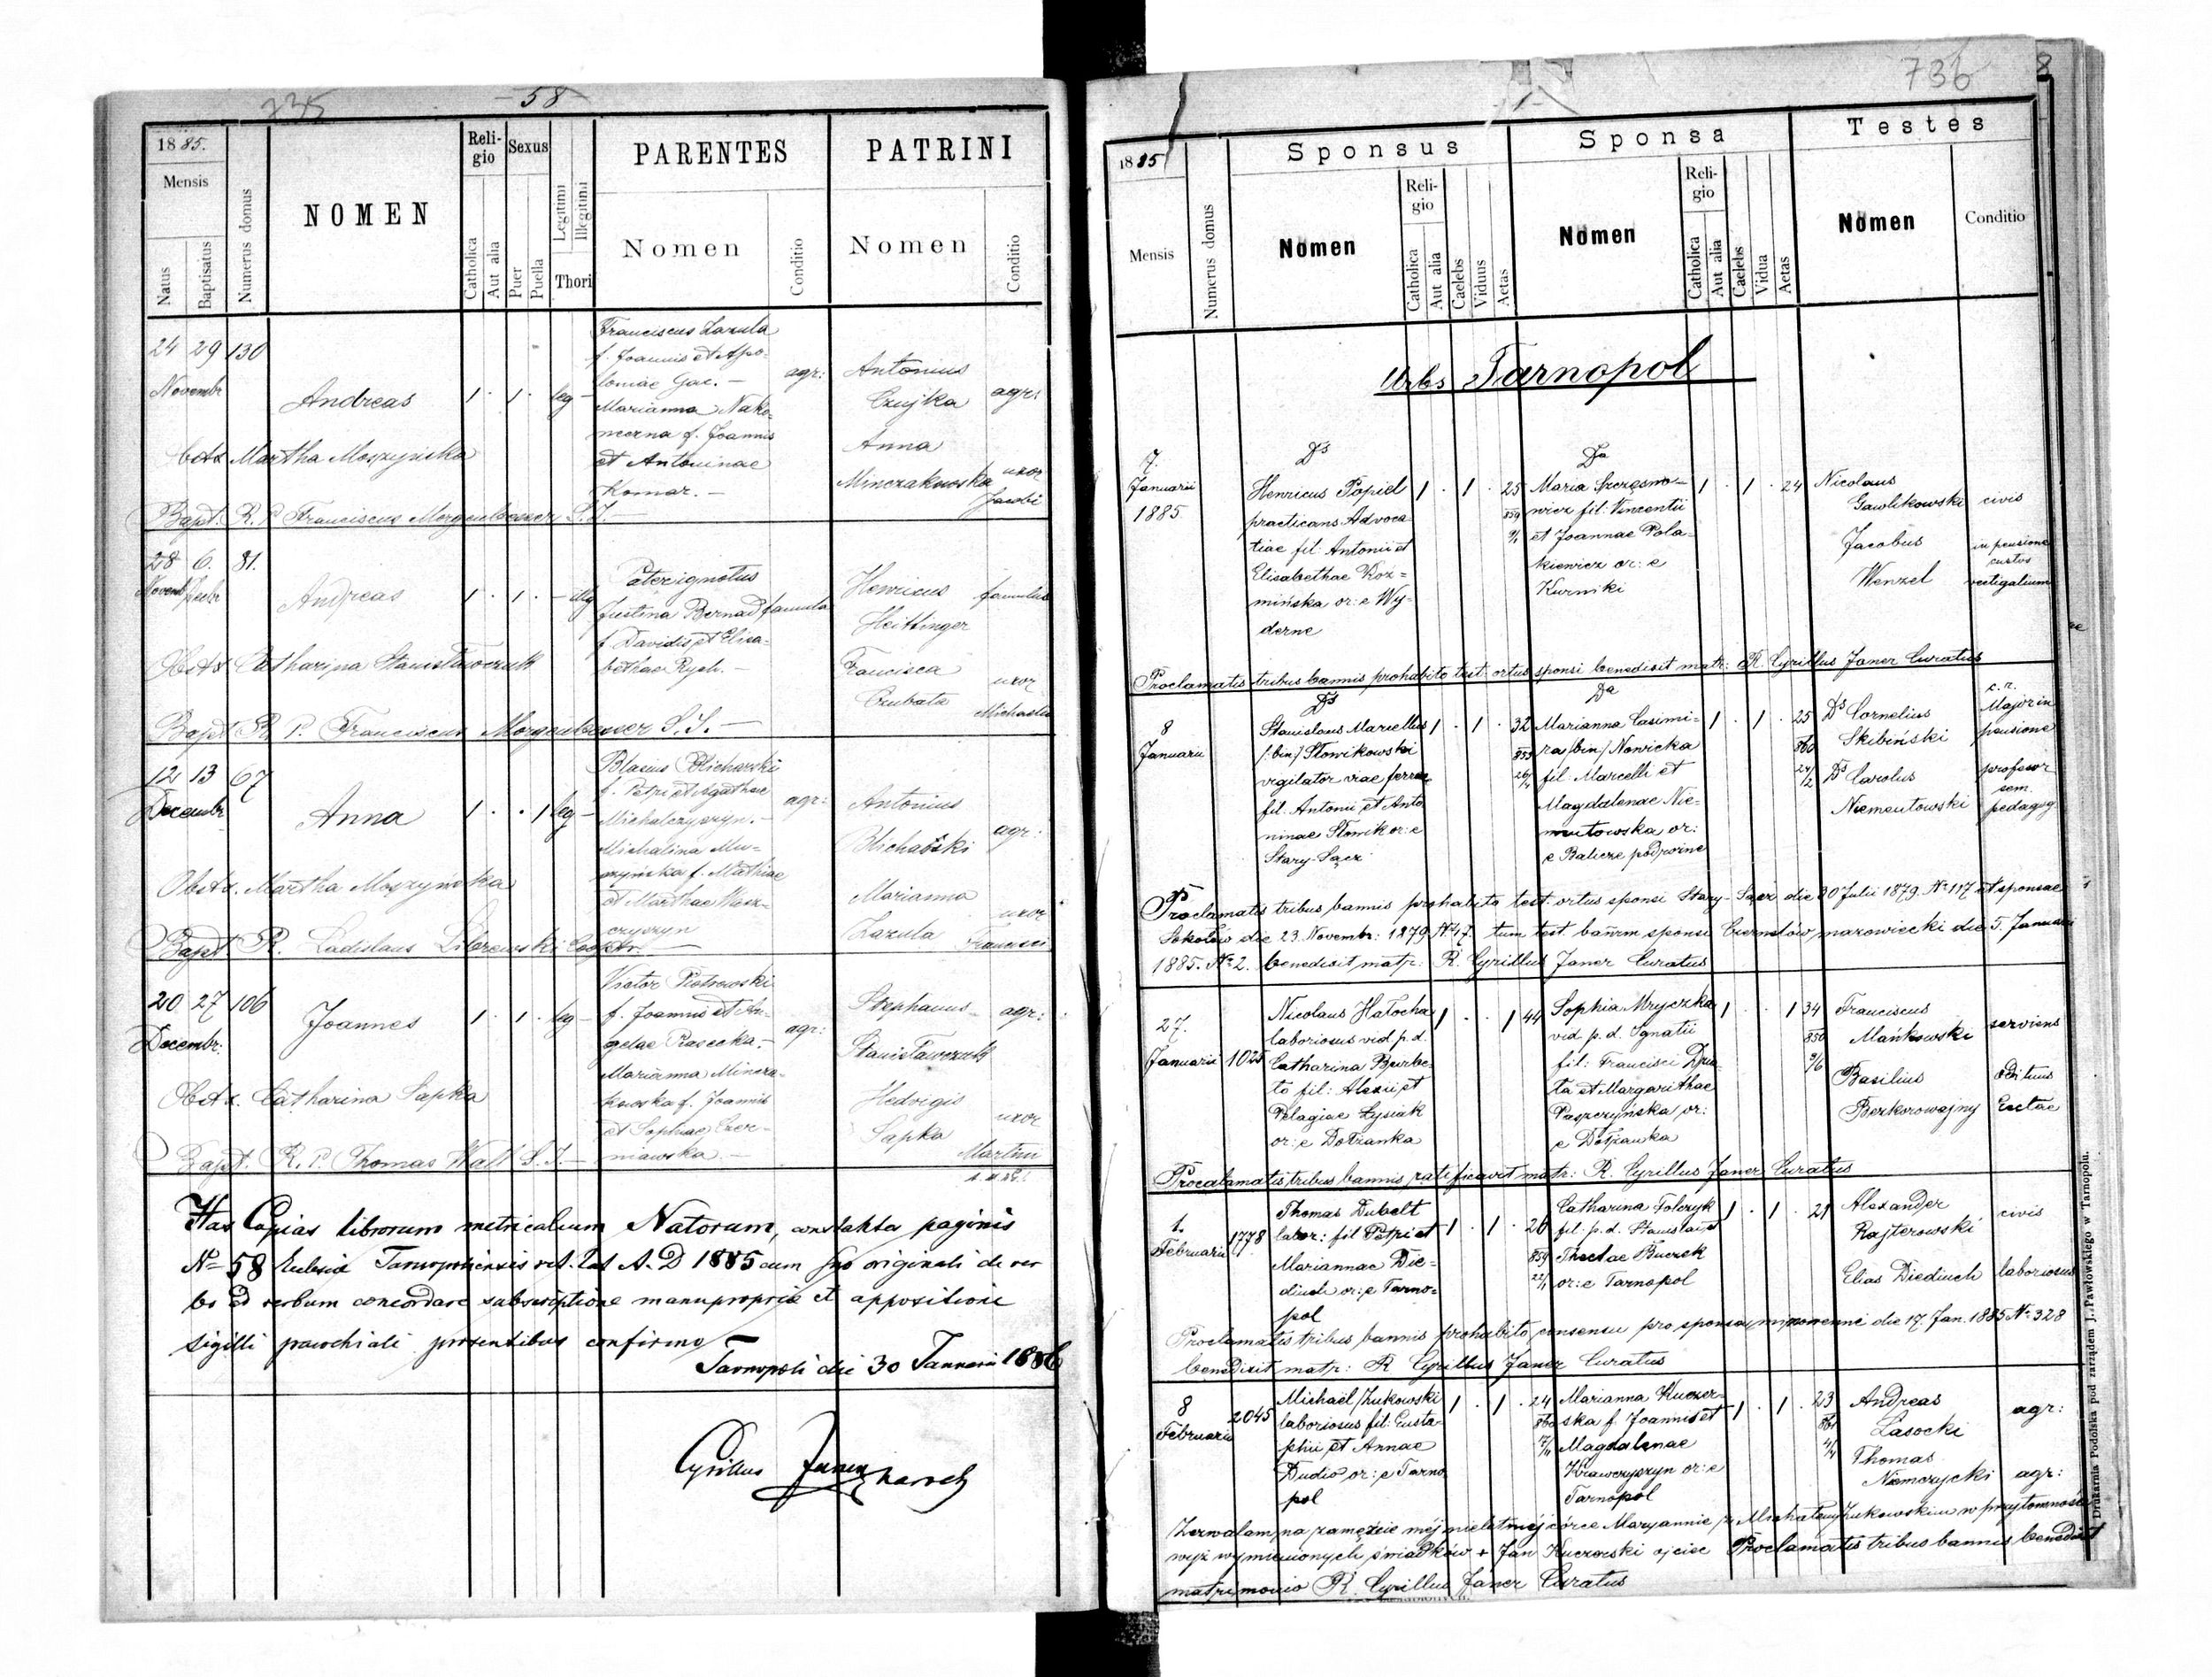 735
- 58 -
1885.
Mensis
Natus
Baptisatus
Numerus domus
NOMEN
Religio
Catholica
Aut alia
Sexus
Puer
Puella
Legitimi
Illegitimi
Thori
PARENTES
Nomen
Conditio
PATRINI
Nomen
Conditio
24 29 130
Novembr
Andreas
1 · 1 · leg -
Franciscus Lazula
f. Joannis et Apo-
loniae Gac. -
agr:
Marianna Nako-
neczna f. Joannis
et Antoninae
Komar. -
Antonius
Czujka
agr:
Anna
Minczakowska
uxor
Jacobi
Obstx Martha Moszyńska
Bapt. R. P. Franciscus Morgenbesser S. J. -
28 6. 81.
Novemb
Andreas
1 · 1 · - illeg
Pater ignotus
Justina Bernad famula
f. Davidis et Elisa-
bethae Rych. -
Henricus
Heittinger
famulus
Francisca
Czubata
uxor
Michaelis
Obstx Catharina Stanisławczuk
Bapt. R. P. Franciscus Morgenbesser S. J. -
12 13 67
Decembr
Anna
1 · · 1 leg -
Blasius Blicharski
f. Petri et Agathae
Michalczyszyn. -
agr:
Michalina Mu-
szyńska f. Mathiae
et Marthae
czyszyn
Antonius
Blicharski
agr:
Marianna
Lazula
uxor
Francisci
Obstx. Martha Moszyńska
Bapt. R. Ladislaus Cooptr.
20 27 106
Decembr:
Joannes
1 · 1 · leg -
Victor Piotrowski
f. Joannis et An-
gelae Rasecka. -
agr:
Marianna Mincza-
kowska f. Joannis
et Sophiae Czer-
niawska. -
Stephanus
Stanisławczuk
agr:
Hedvigis
Sapka
uxor
Martini
Obstx. Catharina Sapka
Bapt. R. P. Thomas Wall S. J. -
Has Copias librorum metricalium Natorum, paginis
No 58 Eclesia Tarnopoliensis rit. lat A. D 1885 cum suo originali de ver
bo ad verbum concordare subscriptione manupropria et appositione
sigilli parochiali praesentibus confirmo -
Tarnopoli die 30 Januarii 1886
Cyrillus Janer
736
8
1885
Mensis
Numerus domus
Sponsus
Nomen
Religio
Catholica
Aut alia
Caelebs
Viduus
Aetas
Sponsa
Nomen
Religio
Catholica
Aut alia
Caelebs
Vidua
Aetas
Testes
Nomen
Conditio
Urbs Tarnopol
7.
Januarii
1885
Ds
Henricus Popiel
practicans Advoca-
tiae fil: Antonii et
Elisabethae Koz=
mińska or: e Wy-
derne
1 · 1 · 25
859
9/1
Da
Maria Szczęsno-
wicz fil: Vincentii
et Joannae Pola-
kiewicz or: e
Kurniki
1 · 1 · 24
Nicolaus
Gawlikowski civis
Jacobus
Wenzel
in pensione
custos
vectigalium
Proclamatis tribus bannis prohabito test: ortus sponsi benedixit matr: R. Cyrillus Janer Curatus
8
Januarii
Ds
Stanislaus Marcellus
/:bin:/ Słowikowski
vigilator viae ferreae
fil. Antonii et Anto-
ninae Słowik or: e
Stary-Sącz
1 · 1 · 32
Da
Marianna Casimi-
ra /bin/ Nowicka
fil: Marcelli et
Magdalenae Nie-
mentowska or:
e Balicze podrożne
1 · 1 · 25
860
24/2
Ds Cornelius
Skibiński
c. r.
Major in
pensione
Ds Carolus
Niementowski
profesor
sem.
pedagog
Proclamatis tribus bannis prohabito test. ortus sponsi Stary-Sącz die 30 Julii 1879. No 117 et sponsae
Sokołów die 23. Novembr: 1879 No 47. tum test. bannm sponsi mazowiecki die 5. Januarii
1885. No 2. benedixit matr: R. Cyrillus Janer Curatus
27.
Januarii 1025
Nicolaus Hałocha
laboriosus vid. p. d.
Catharina
fil: Alexii et
Pelagiae Łysiak
or: e Dołżanka
1 · · 1 44
Sophia Mryczka
vid. p. d. Ignatii
fil: Francisci
et Margarithae
Paszczyńska or:
e Dołżanka
1 · · 1 34
850
9/6
Franciscus
Mańkowski serviens
Basilius
Bezkorowajny
Edituus
Eccltae
Proclamatis tribus bannis ratificavit matr: R. Cyrillus Janer Curatus
1.
Februarii 1778
Thomas Dubelt
labor: fil Petri et
Mariannae Die-
diuch or: e Tarno=
pol
1 · 1 · 26
859
22/1
Catharina Tolczyk
fil. p. d. Stanislai et
Theclae Buczek
or: e Tarnopol
1 · 1 · 21
Alexander
Rajterowski
civis
Elias Diediuch laboriosus
Proclamatis tribus bannis prohabito consensu pro sponsa minorenni die 17 Jan. 1885 No 328
benedixit matr: R Cyrillus Janer Curatus
8
Februarii 2045
Michaël Żukowski
laboriosus fil: Eusta-
phii et Annae
Dudio or: e Tarno
pol
1 · 1 · 24
860
Marianna Kuczer-
ska f. Joannis et
Magdalenae
Krawczyszyn or: e
Tarnopol
1 · 1 · 23
861
4/4
Andreas
Lasocki
agr:
Thomas
Niemczycki agr:
Zezwalam na zamęźcie méj nieletniéj córce Maryannie z Michałem Żukowskim w przytomności
wyż wymienionych świadków + Jan Kuczerski ojciec Proclamatis tribus bannis benedixit
matrimonio R. Cyrillus Janer Curatus
Drukarnia Podolska pod zarządem J. Pawłowskiego w Tarnopolu.